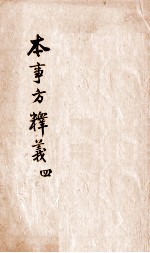 本事方釋義四